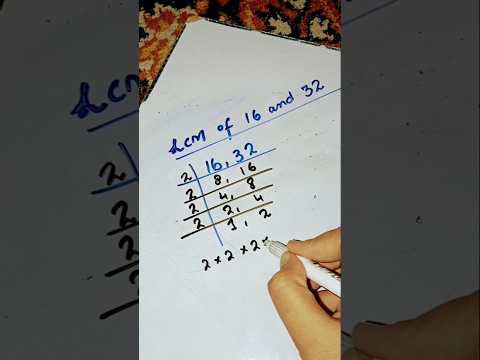 LCM of 16 and 32
2 | 16, 32
2 | 8, 16
2 | 4, 8
2 | 2, 4
2 | 1, 2
2 × 2 × 2 ×